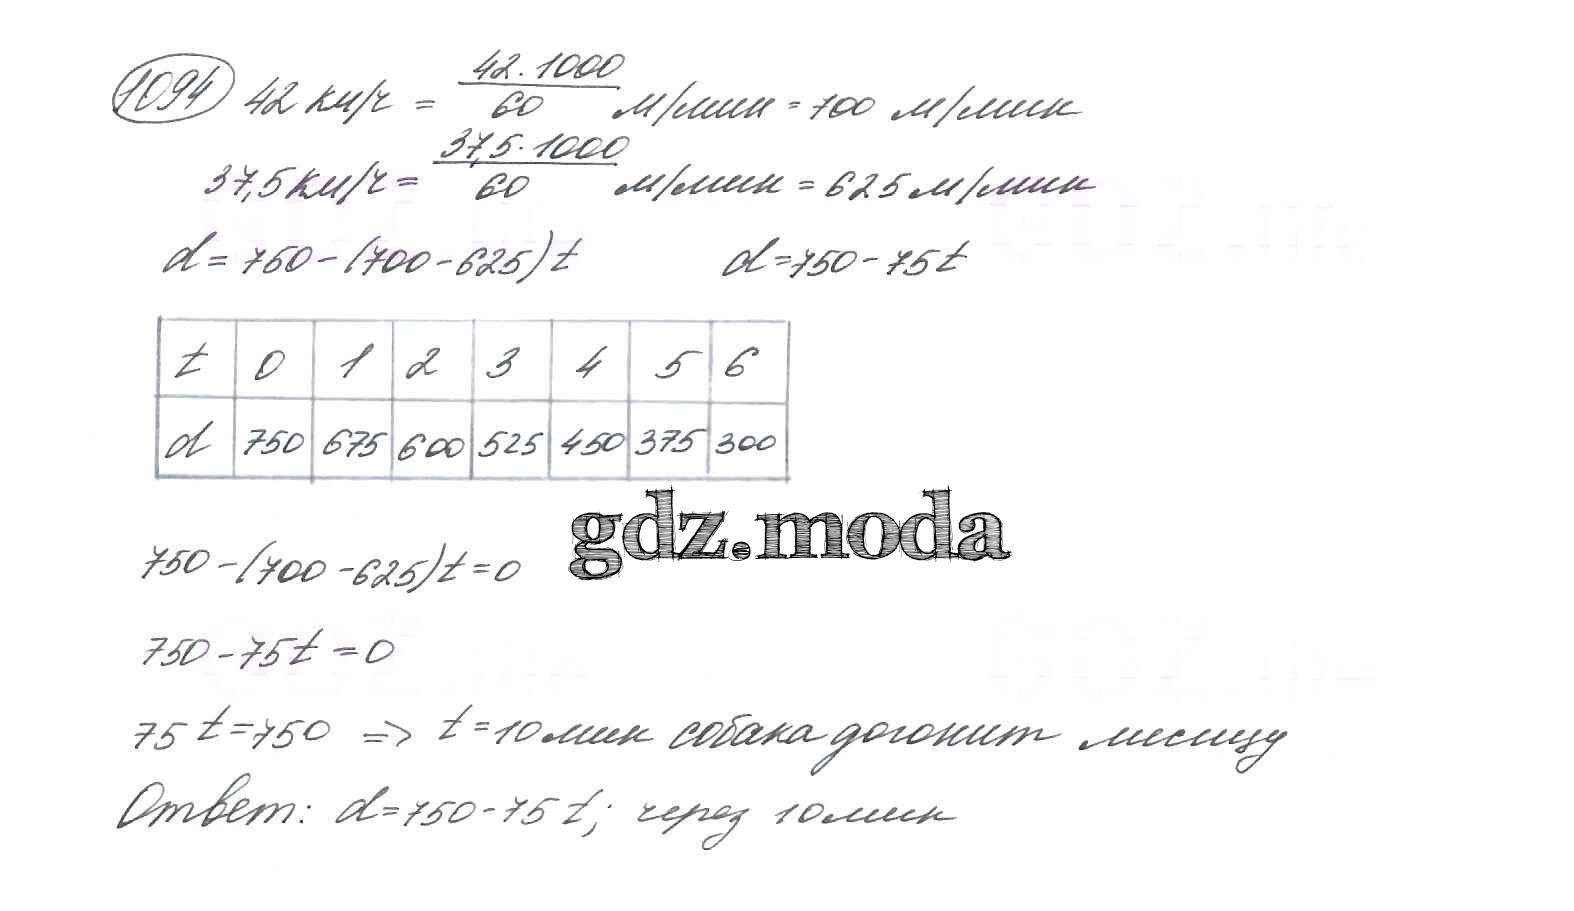 1094 42 км/ч = 42·1000/60 м/мин = 700 м/мин
37,5 км/ч = 37,5·1000/60 м/мин = 625 м/мин
d = 760 - (700 - 625)t d = 750 - 75t
t 0 1 2 3 4 5 6
d 750 675 600 525 450 375 300
gdz.moda
750 - (700 - 625)t = 0
750 - 75t = 0
75t = 750 => t = 10 мин собака догонит лисицу
Ответ: d = 750 - 75t; через 10 мин